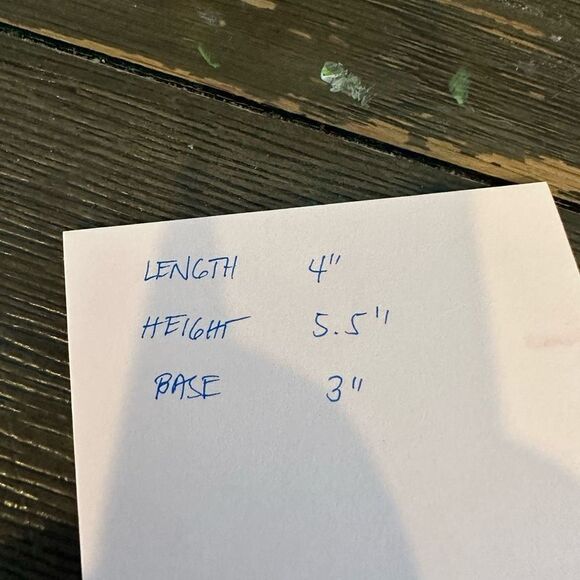 LENGTH 4"
HEIGHT 5.5"
BASE 3"